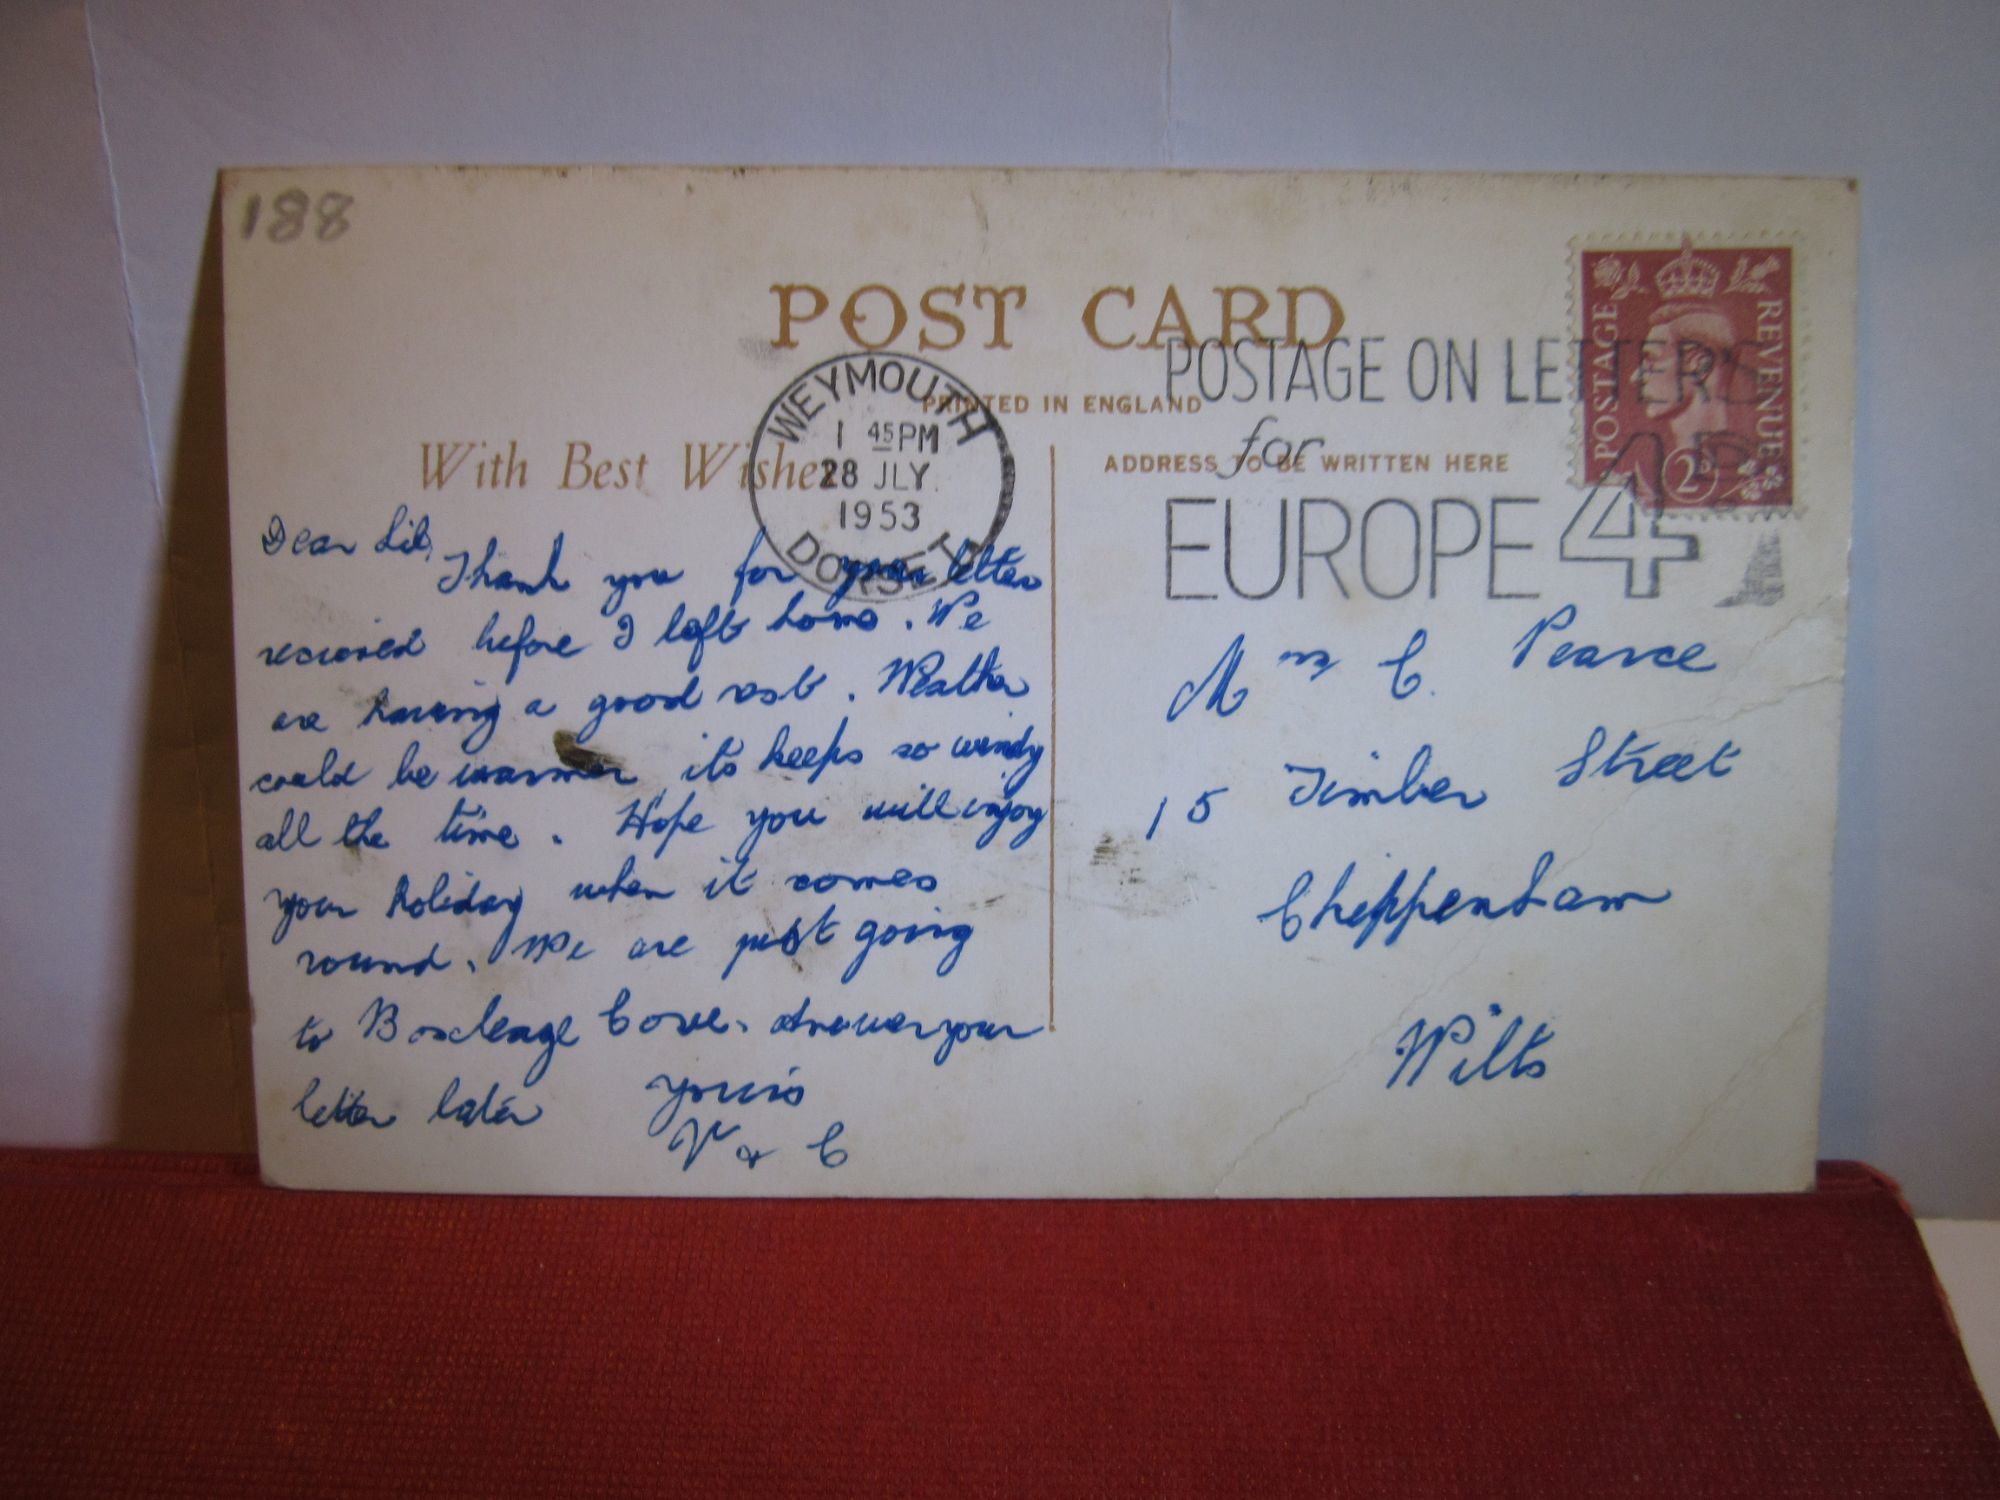 188
POST CARD
PRINTED IN ENGLAND
With Best Wishes
ADDRESS TO BE WRITTEN HERE
WEYMOUTH
1 45 PM
28 JLY
1953
DORSET
POSTAGE ON LETTERS
for
EUROPE 4D
POSTAGE
REVENUE
2D
Dear Lil,
Thank you for your letter
recieved before I left home. We
are having a good rest. Weather
could be warmer its keeps so windy
all the time. Hope you will injoy
your holiday when it comes
round. We are just going
to Cove. Answer your
letter later
yours
V & C
Mrs C. Pearce
15 Timber Street
Chippenham
Wilts